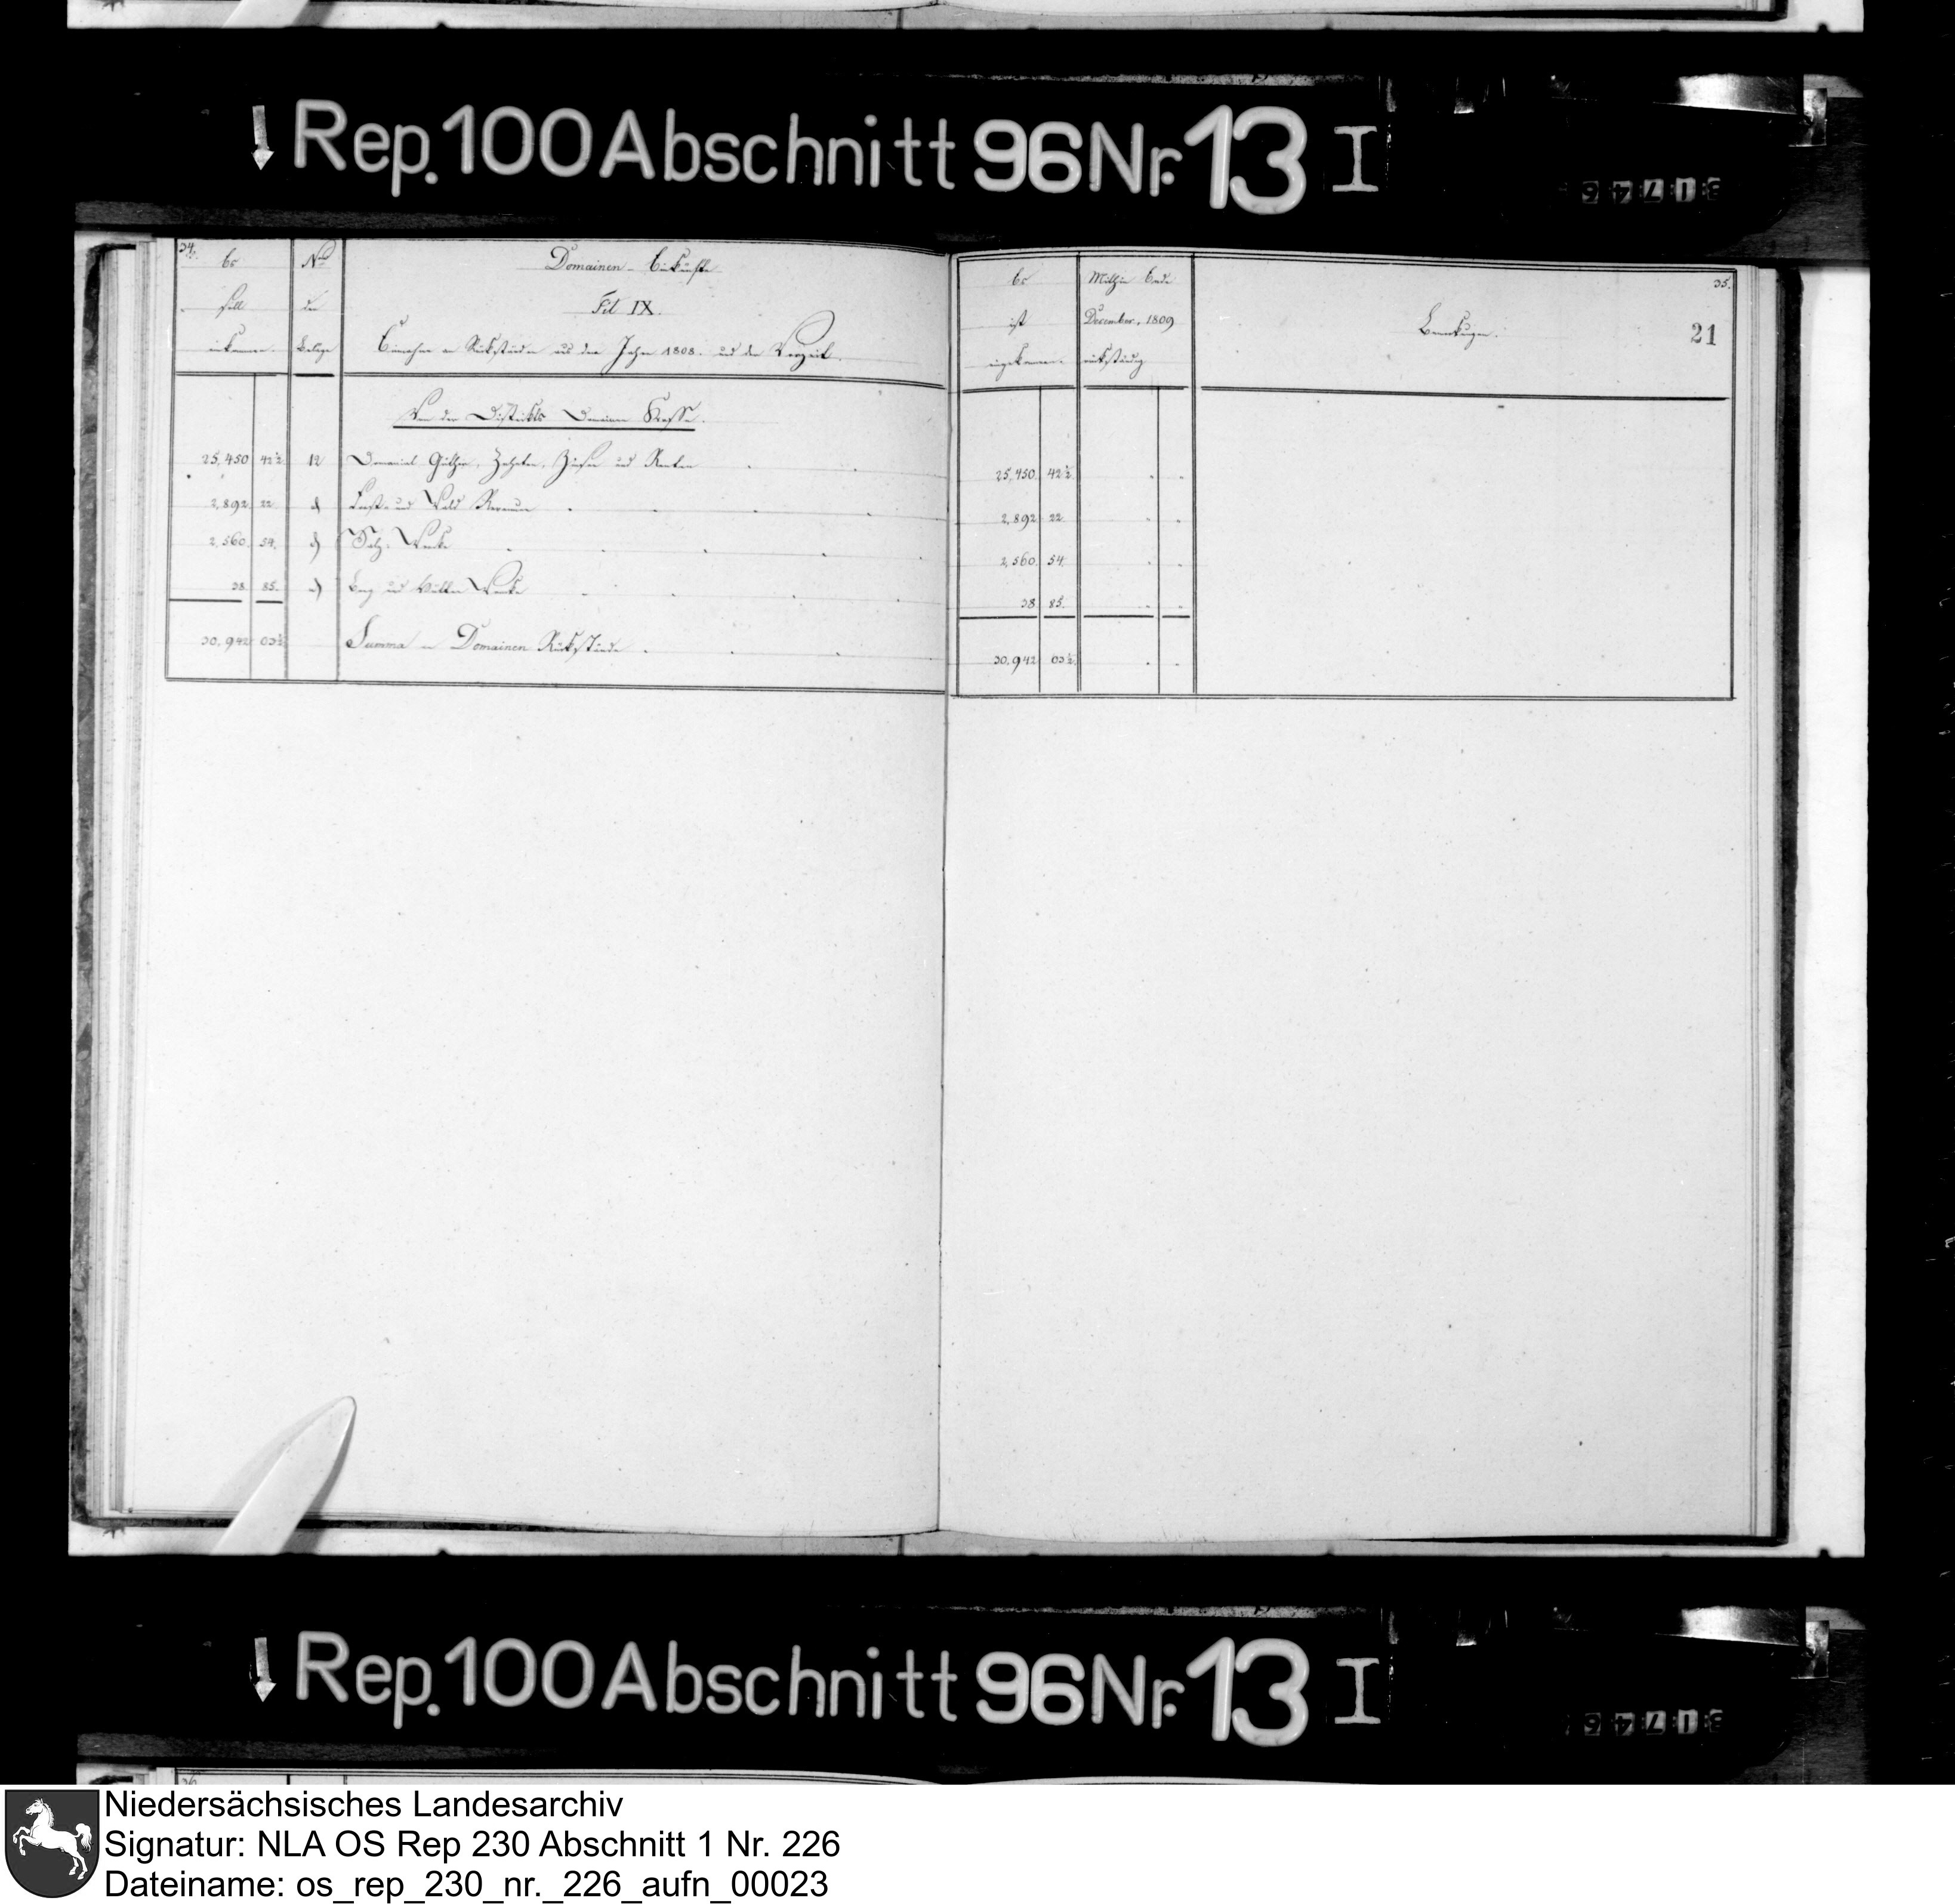 Rep. 100 Abschnitt 96 Nr. 13 I
34.
Es
soll
einkommen.
No
der
Belege
Domainen-Einkünfte
Tit IX.
Einnahme an Rückständen aus dem Jahre 1808. und der Vorzeit.
Es
ist
eingekommen.
Mithin Ende
December, 1809
rückständig
Bemerkungen.
35.
21
Von der Distrikts Domainen Kasse.
25,450 42½ 12 Domanial Güther, Zehnten, Zinsen und Renten
25,450 42½
2,892 22 Forst- und Wald Revenüen
2,892 22
2,560. 54. Salz-Werke
2,560. 54.
38 85. Berg und Hütten Werke
38 85.
30,942 03½ Summa an Domainen Rückstände
30,942 03½
Rep. 100 Abschnitt 96 Nr. 13 I
36
Niedersächsisches Landesarchiv
Signatur: NLA OS Rep 230 Abschnitt 1 Nr. 226
Dateiname: os_rep_230_nr._226_aufn_00023